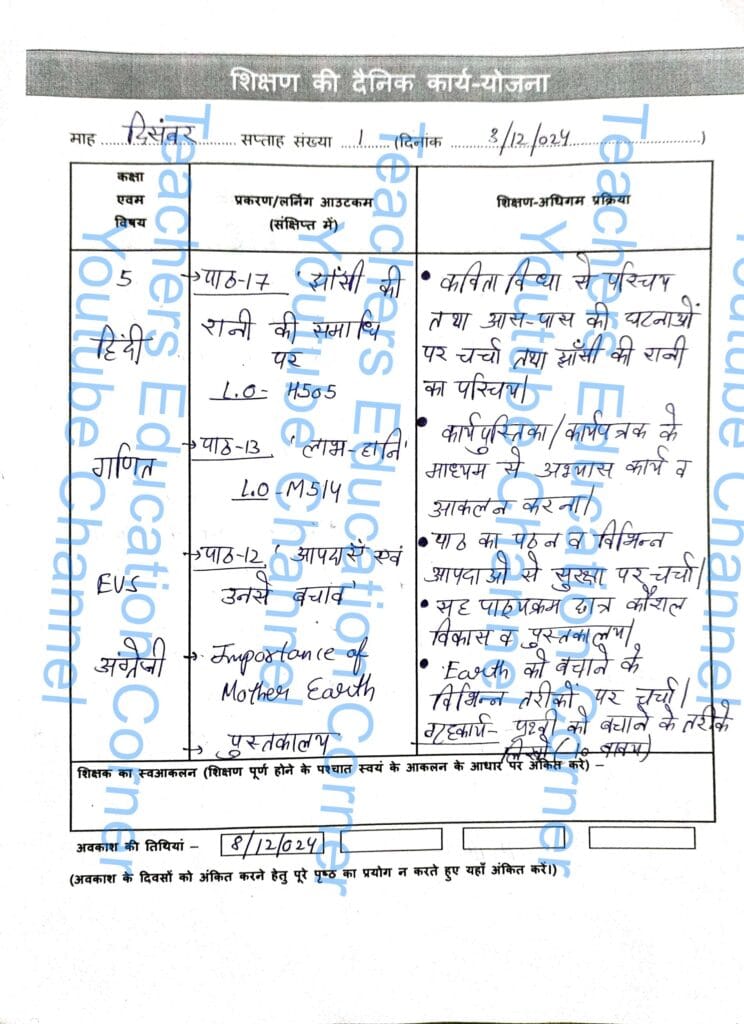 शिक्षण की दैनिक कार्य-योजना
माह दिसंबर सप्ताह संख्या 1 (दिनांक 3/12/024)
कक्षा एवम विषय
प्रकरण/लर्निंग आउटकम (संक्षिप्त में)
शिक्षण-अधिगम प्रक्रिया
5
हिंदी
→ पाठ-17 'झाँसी की
रानी की समाधि
पर
L.O- H505
• कविता विधा से परिचय
तथा आस-पास की घटनाओं
पर चर्चा तथा झाँसी की रानी
का परिचय।
गणित
→ पाठ-13 'लाभ-हानि'
L.O-M514
• कार्यपुस्तिका/कार्यपत्रक के
माध्यम से अभ्यास कार्य व
आकलन करना।
EVS
→ पाठ-12 'आपदाएँ एवं
उनसे बचाव'
• पाठ का पठन व विभिन्न
आपदाओं से सुरक्षा पर चर्चा।
• सह पाठ्यक्रम छात्र कौशल
विकास व पुस्तकालय।
अंग्रेजी
→ Importance of
Mother Earth
→ पुस्तकालय
• Earth को बचाने के
विभिन्न तरीकों पर चर्चा।
गृहकार्य- पृथ्वी को बचाने के तरीके
लिखो (10 वाक्य)
शिक्षक का स्वआकलन (शिक्षण पूर्ण होने के पश्चात स्वयं के आकलन के आधार पर अंकित करे) –
अवकाश की तिथियां – 8/12/024
(अवकाश के दिवसों को अंकित करने हेतु पूरे पृष्ठ का प्रयोग न करते हुए यहाँ अंकित करें।)
Teachers Education Corner
Youtube Channel
Teachers Education Corner
Youtube Channel
Teachers Education Corner
Youtube Channel
Youtube Channel